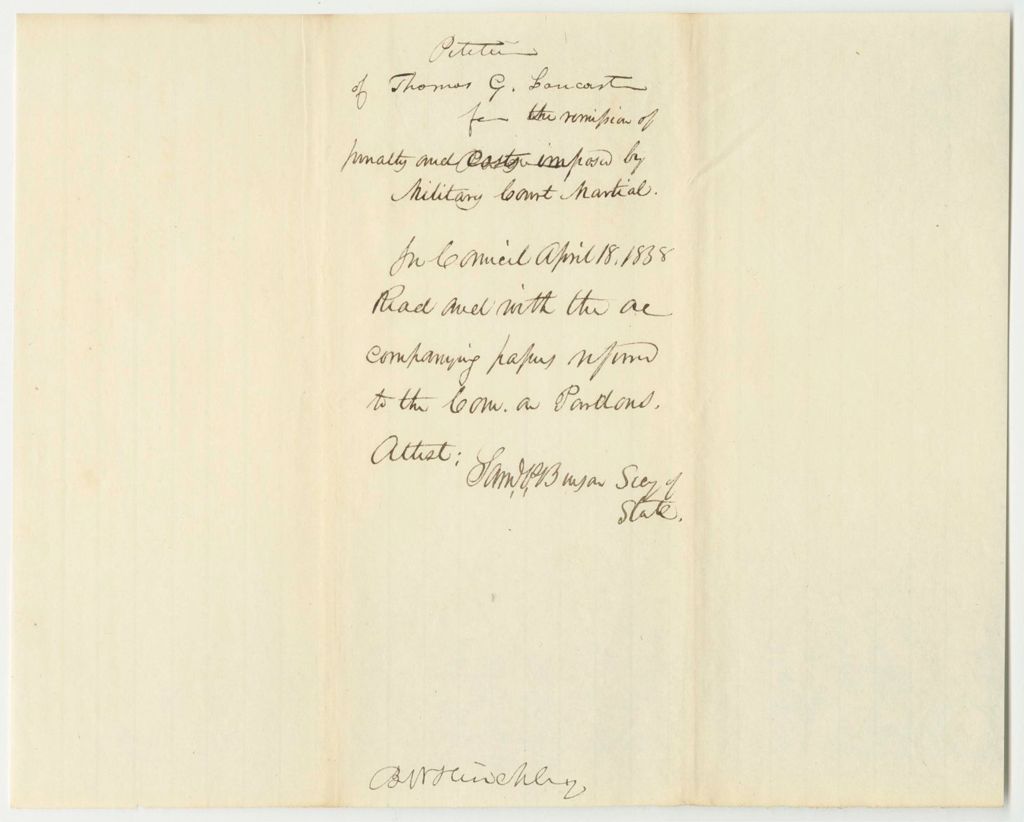 Petition
of Thomas G. Lancaster
for the remission of
penalty and costs imposed by
Military Court Martial.
In Council April 18, 1838
Read and with the ac
companying papers referred
to the Com. on Pardons.
Attest:
Saml P. Benson Secy of
State.
B W Hinchley